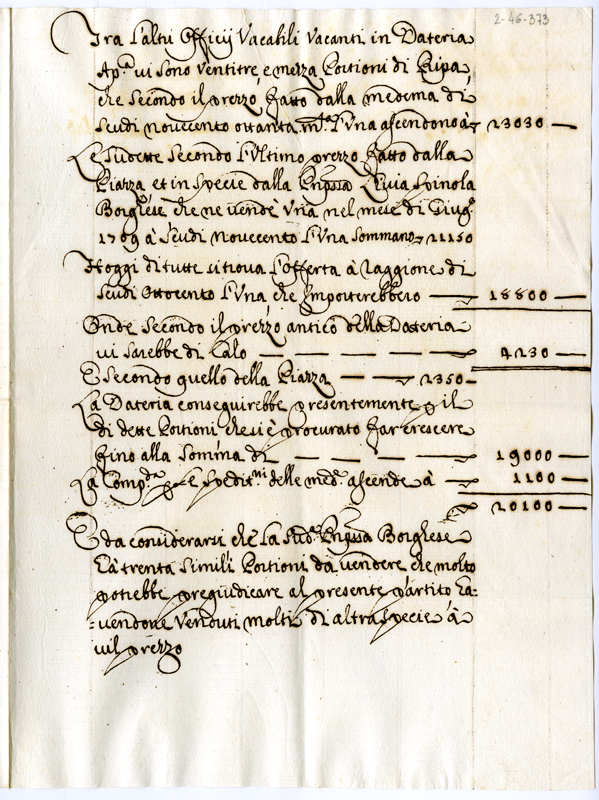 2-46-373
Tra l'altri Officij Vacabili Vacanti in Dateria
Ap.ca vi sono Ventitre, e mezza Portioni di Ripa,
che secondo il prezzo, fatto dalla medema di
scudi novecento ottanta m.ta l'Una ascendono à 23030 —
Le sudette secondo l'Ultimo prezzo fatto dalla
Piazza et in specie dalla Prnpssa Livia Spinola
Borghese che ne vendè Una nel mese di Giug.o
1709 à scudi Novecento l'Una sommano 21150
Hoggi di tutte si trova l'offerta à raggione di
scudi Ottocento l'Una che importerebbero — 18800 —
Onde secondo il prezzo antico della Dateria
vi sarebbe di Calo — — — — — 4230 —
E secondo quello della Piazza — — 2350 —
La Dateria conseguirebbe presentemente p il
di dette Portioni che si è procurato far crescere
fino alla somma di — — — — 19000 —
La Comp.da p le spedit.ni delle med.e ascende à — 1100 —
20100 —
E da considerarsi che la sud.a Prnpssa Borghese
hà trenta simili Portioni da vendere che molto
potrebbe pregiudicare al presente partito ha=
=vendone Venduti molti di altra specie à
vil prezzo